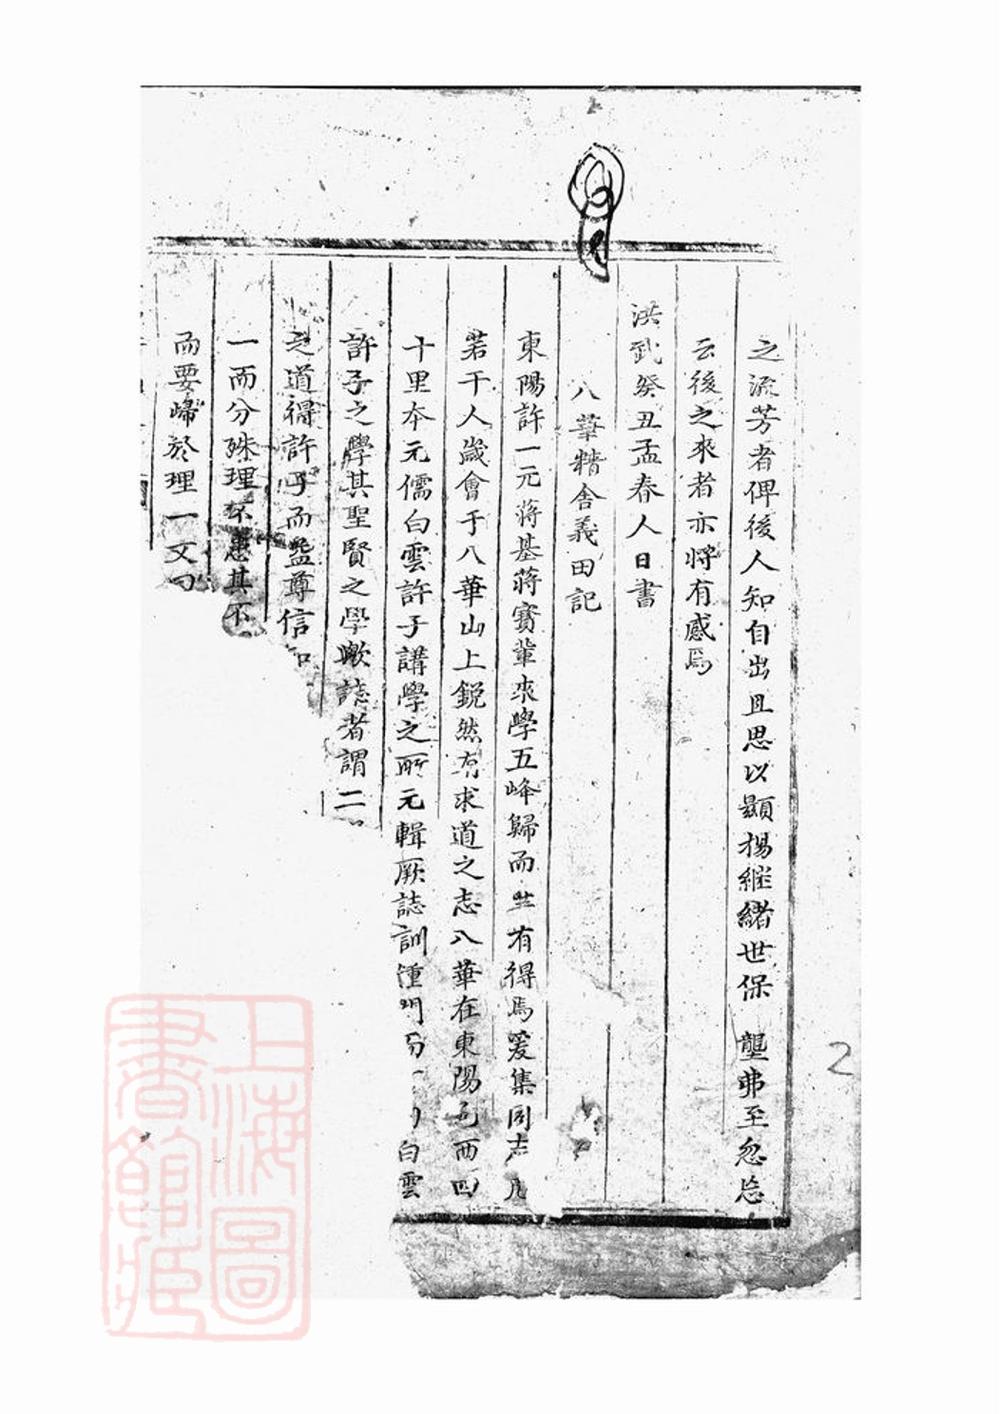 之流芳者俾後人知自出且思以顯揚繼緒世保 壟弗至忽怠
云後之來者亦將有感焉
洪武癸丑孟春人日書
八華精舍義田記
東陽許一元蔣基蔣賓輩來學五峰歸而 有得焉爰集同志凡
若干人歲會于八華山上銳然有求道之志八華在東陽邑西四
十里本元儒白雲許子講學之所元輯厥誌訓 白雲
許子之學其聖賢之學歟誌者謂二
之道得許子而益尊信
一而分殊理不患其不
而要歸於理一又曰
2
上海圖書館藏